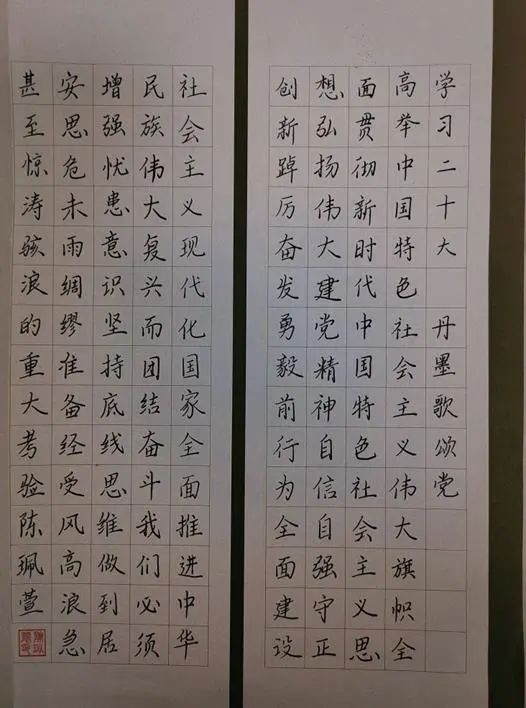 学习二十大 丹墨歌颂党
高举中国特色社会主义伟大旗帜全
面贯彻新时代中国特色社会主义思
想弘扬伟大建党精神自信自强守正
创新踔厉奋发勇毅前行为全面建设
社会主义现代化国家全面推进中华
民族伟大复兴而团结奋斗我们必须
增强忧患意识坚持底线思维做到居
安思危未雨绸缪准备经受风高浪急
甚至惊涛骇浪的重大考验陈珮萱